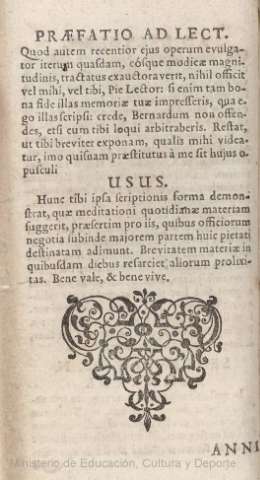 PRÆFATIO AD LECT.
Quod autem recentior ejus operum evulga-
tor iterum quasdam, eósque modicæ magni-
tudinis, tractatus exauctoraverit, nihil officit
vel mihi, vel tibi, Pie Lector: si enim tam bo-
na fide illas memoriæ tuæ impresseris, qua e-
go illas scripsi: crede, Bernardum non offen-
des, etsi cum tibi loqui arbitraberis. Restat,
ut tibi breviter exponam, qualis mihi videa-
tur, imo quisnam præstitutus à me sit hujus o-
pusculi
USUS.
Hunc tibi ipsa scriptionis forma demon-
strat, quæ meditationi quotidianæ materiam
suggerit, præsertim pro iis, quibus officiorum
negotia subinde majorem partem huic pietati
destinatam adimunt. Brevitatem materiæ in
quibusdam diebus resarciet aliorum prolixi-
tas. Bene vale, & bene vive.
ANNI
Ministerio de Educación, Cultura y Deporte